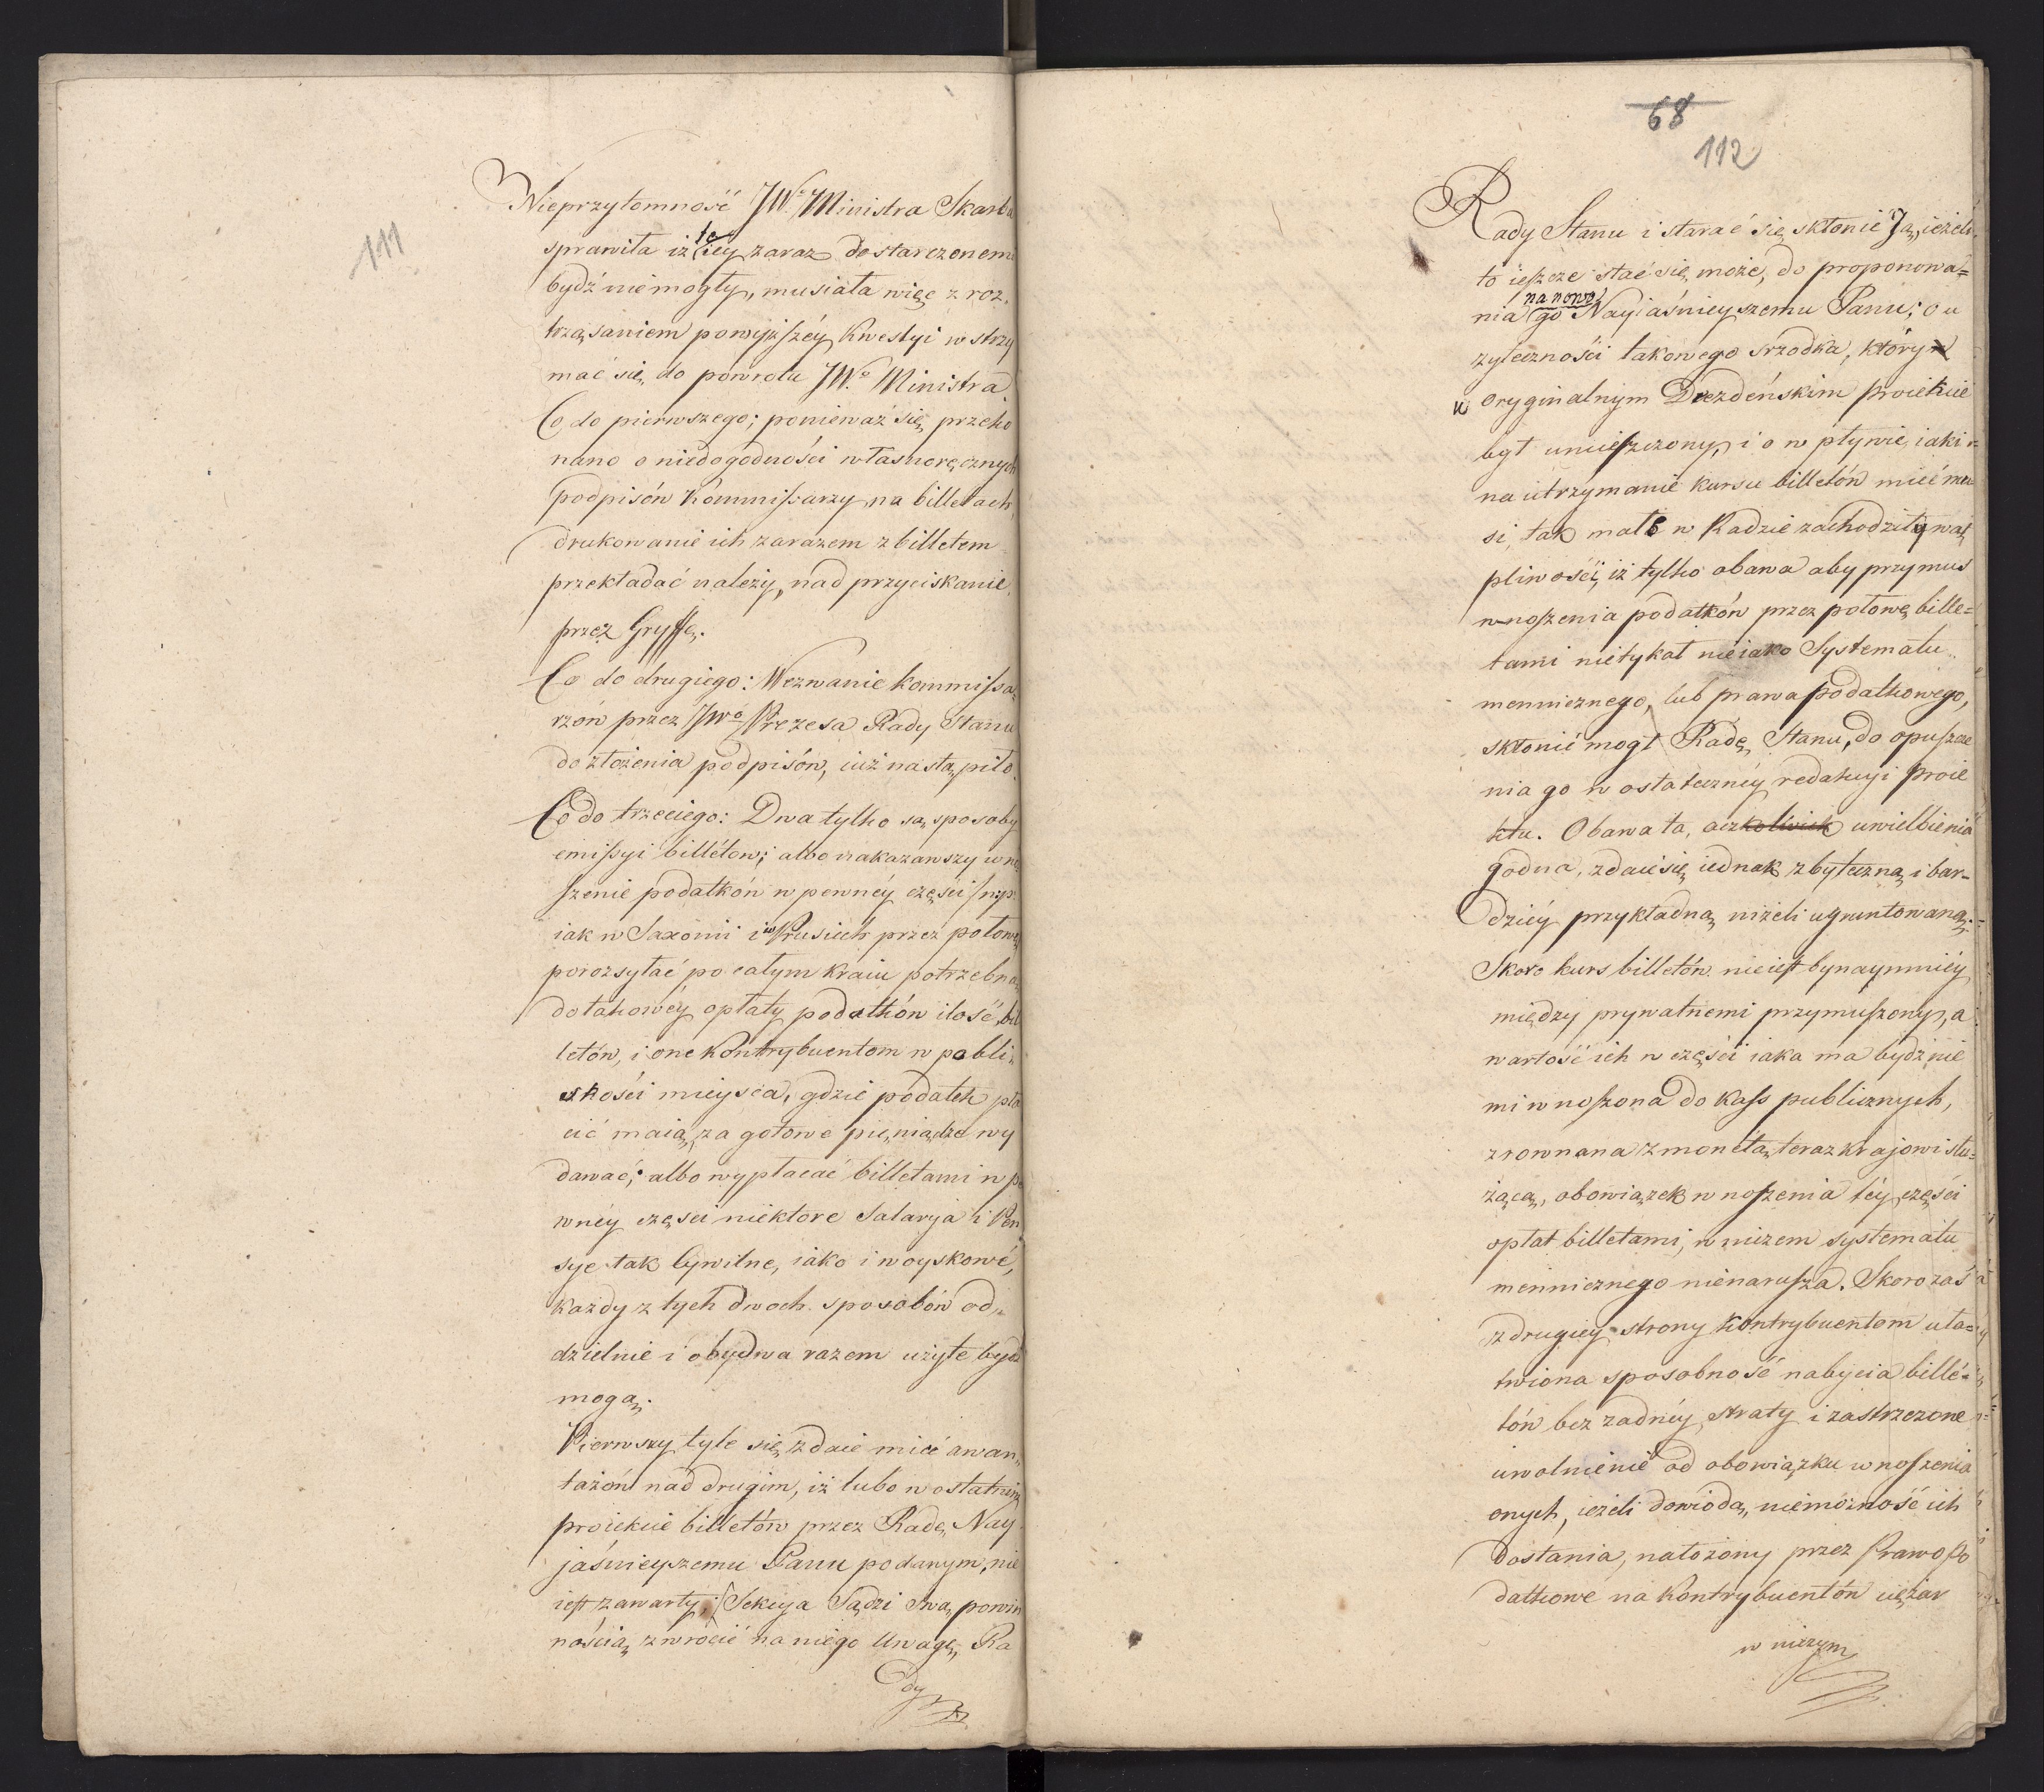 111
Nieprzytomność JW.o Ministra Skarbu
sprawiła iż te iey zaraz dostarczonemi
bydź niemogły, musiała więc z roz,
trząsaniem powyższéy kwestyi wstrzy
mać się do powrotu JW.o Ministra.
Co do pierwszego; ponieważ się przeko
nano o niedogodności własnoręcznych
podpisón Kommissarzy na billetach,
drukowanie ich zarazem z billetem
przekładać należy, nad przyciskanie
przez Gryffę.
Co do drugiego: Wezwanie kommissa,
rzón przez JWo Prezesa Rady Stanu
do złożenia podpisón, iuż nastąpiło.
Co do trzeciego: Dwa tylko są sposoby
emissyi billétow; albo nakazawszy wno
szenie podatkón w pewnéy części np.
iak w Saxonii i w Prusiech przez połowę
porozsyłać po całym kraiu potrzebną
do takowéy opłaty podatkón ilość bil
letón, i one kontrybuentom w pobli,
skości mieysca, gdzie podatek pła
cić maią, za gotowe pieniądze wy
dawać; albo wypłacać billetami w pe
wnéy części niektore Salarya i Pen
sye tak Cywilne, iako i woyskowé,
każdy z tych dwoch sposobón od,
dzielnie i obydwa razem użyte bydź
mogą.
Pierwszy tyle się zdaie mieć awan,
tażón nad drugim, iż lubo w ostatnim
proiekcie billetón przez Radę Nay
jaśnieyszemu Panu podanym, nie
iest zawarty; Sekcya Sądzi swą powin
nością zwrócić na niego Uwagę Ra
dy
68
112
Rady Stanu i starać się skłonić Ją, ieżeli
to ieszcze stać się może, do proponowa=
nia go na nowo Nayiaśnieyszemu Panu; O u
zyteczności takowego srzodka, który
w oryginalnym Drezdeńskim proiekcie
był umieszczony, i o wpływie iaki
na utrzymanie kursu billetón mieć mu
si, tak małe w Radzie zachodziły wąt
pliwości, iż tylko obawa aby przymus
wnoszenia podatkón przez połowę bille=
tami nietykał nieiako Systematu
menniczego, lub prawa podatkowego,
skłonić mogł Radę Stanu, do opuszcze
nia go w ostateczney redakcyi proie
ktu. Obawa ta, aczkolwiek uwielbienia
godna, zdaie się iednak zbyteczną i bar=
dziéy przykładną niżeli ugruntowaną.
Skoro kurs billetón nie iest bynaymniéy
między prywatnemi przymuszony, a
wartość ich w części iaka ma bydź nie
mi wnoszona do kass publicznych,
zrownana z monetą teraz krajowi słu=
żącą, obowiązek wnoszenia téy części
opłat billetami, w niczem systematu
menniczego nienarusza. Skoro zaś
z drugiey strony kontrybuentom uła=
twiona sposobność nabycia billé=
tón bez zadnéy straty i zastrzezone
uwolnienie od obowiązku wnoszenia
onych, ieżeli dowiodą niemożność ich
dostania, nałożony przez Prawo Po
datkowe na kontrybuentón ciężar
w niczym